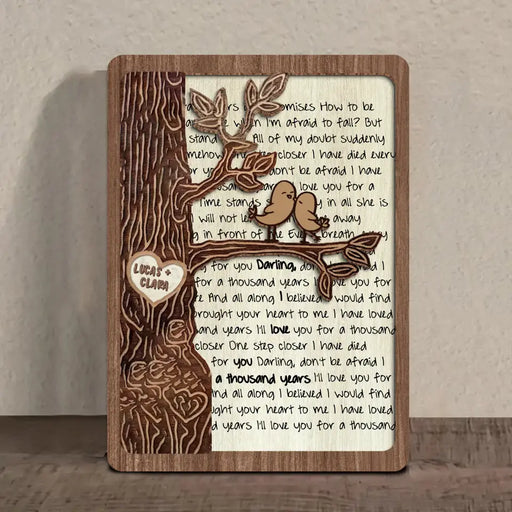 rs b omises How to be
when I'm afraid to fall? But
stand All of my doubt suddenly
mehow closer I have died every
or yo don't be afraid I have
usan love you for a
Time stands y in all she is
I will not le away
g in front of me Eve breath
LUCAS +
CLARA
g for you Darling, do be d I
for a thousand years ve you for
te And all along I believed would find
brought your heart to me I have loved
and years I'll love you for a thousand
closer One step closer I have died
for you Darling, don't be afraid I
a thousand years I'll love you for
And all along I believed I would find
ught your heart to me I have loved
d years I'll love you for a thousand